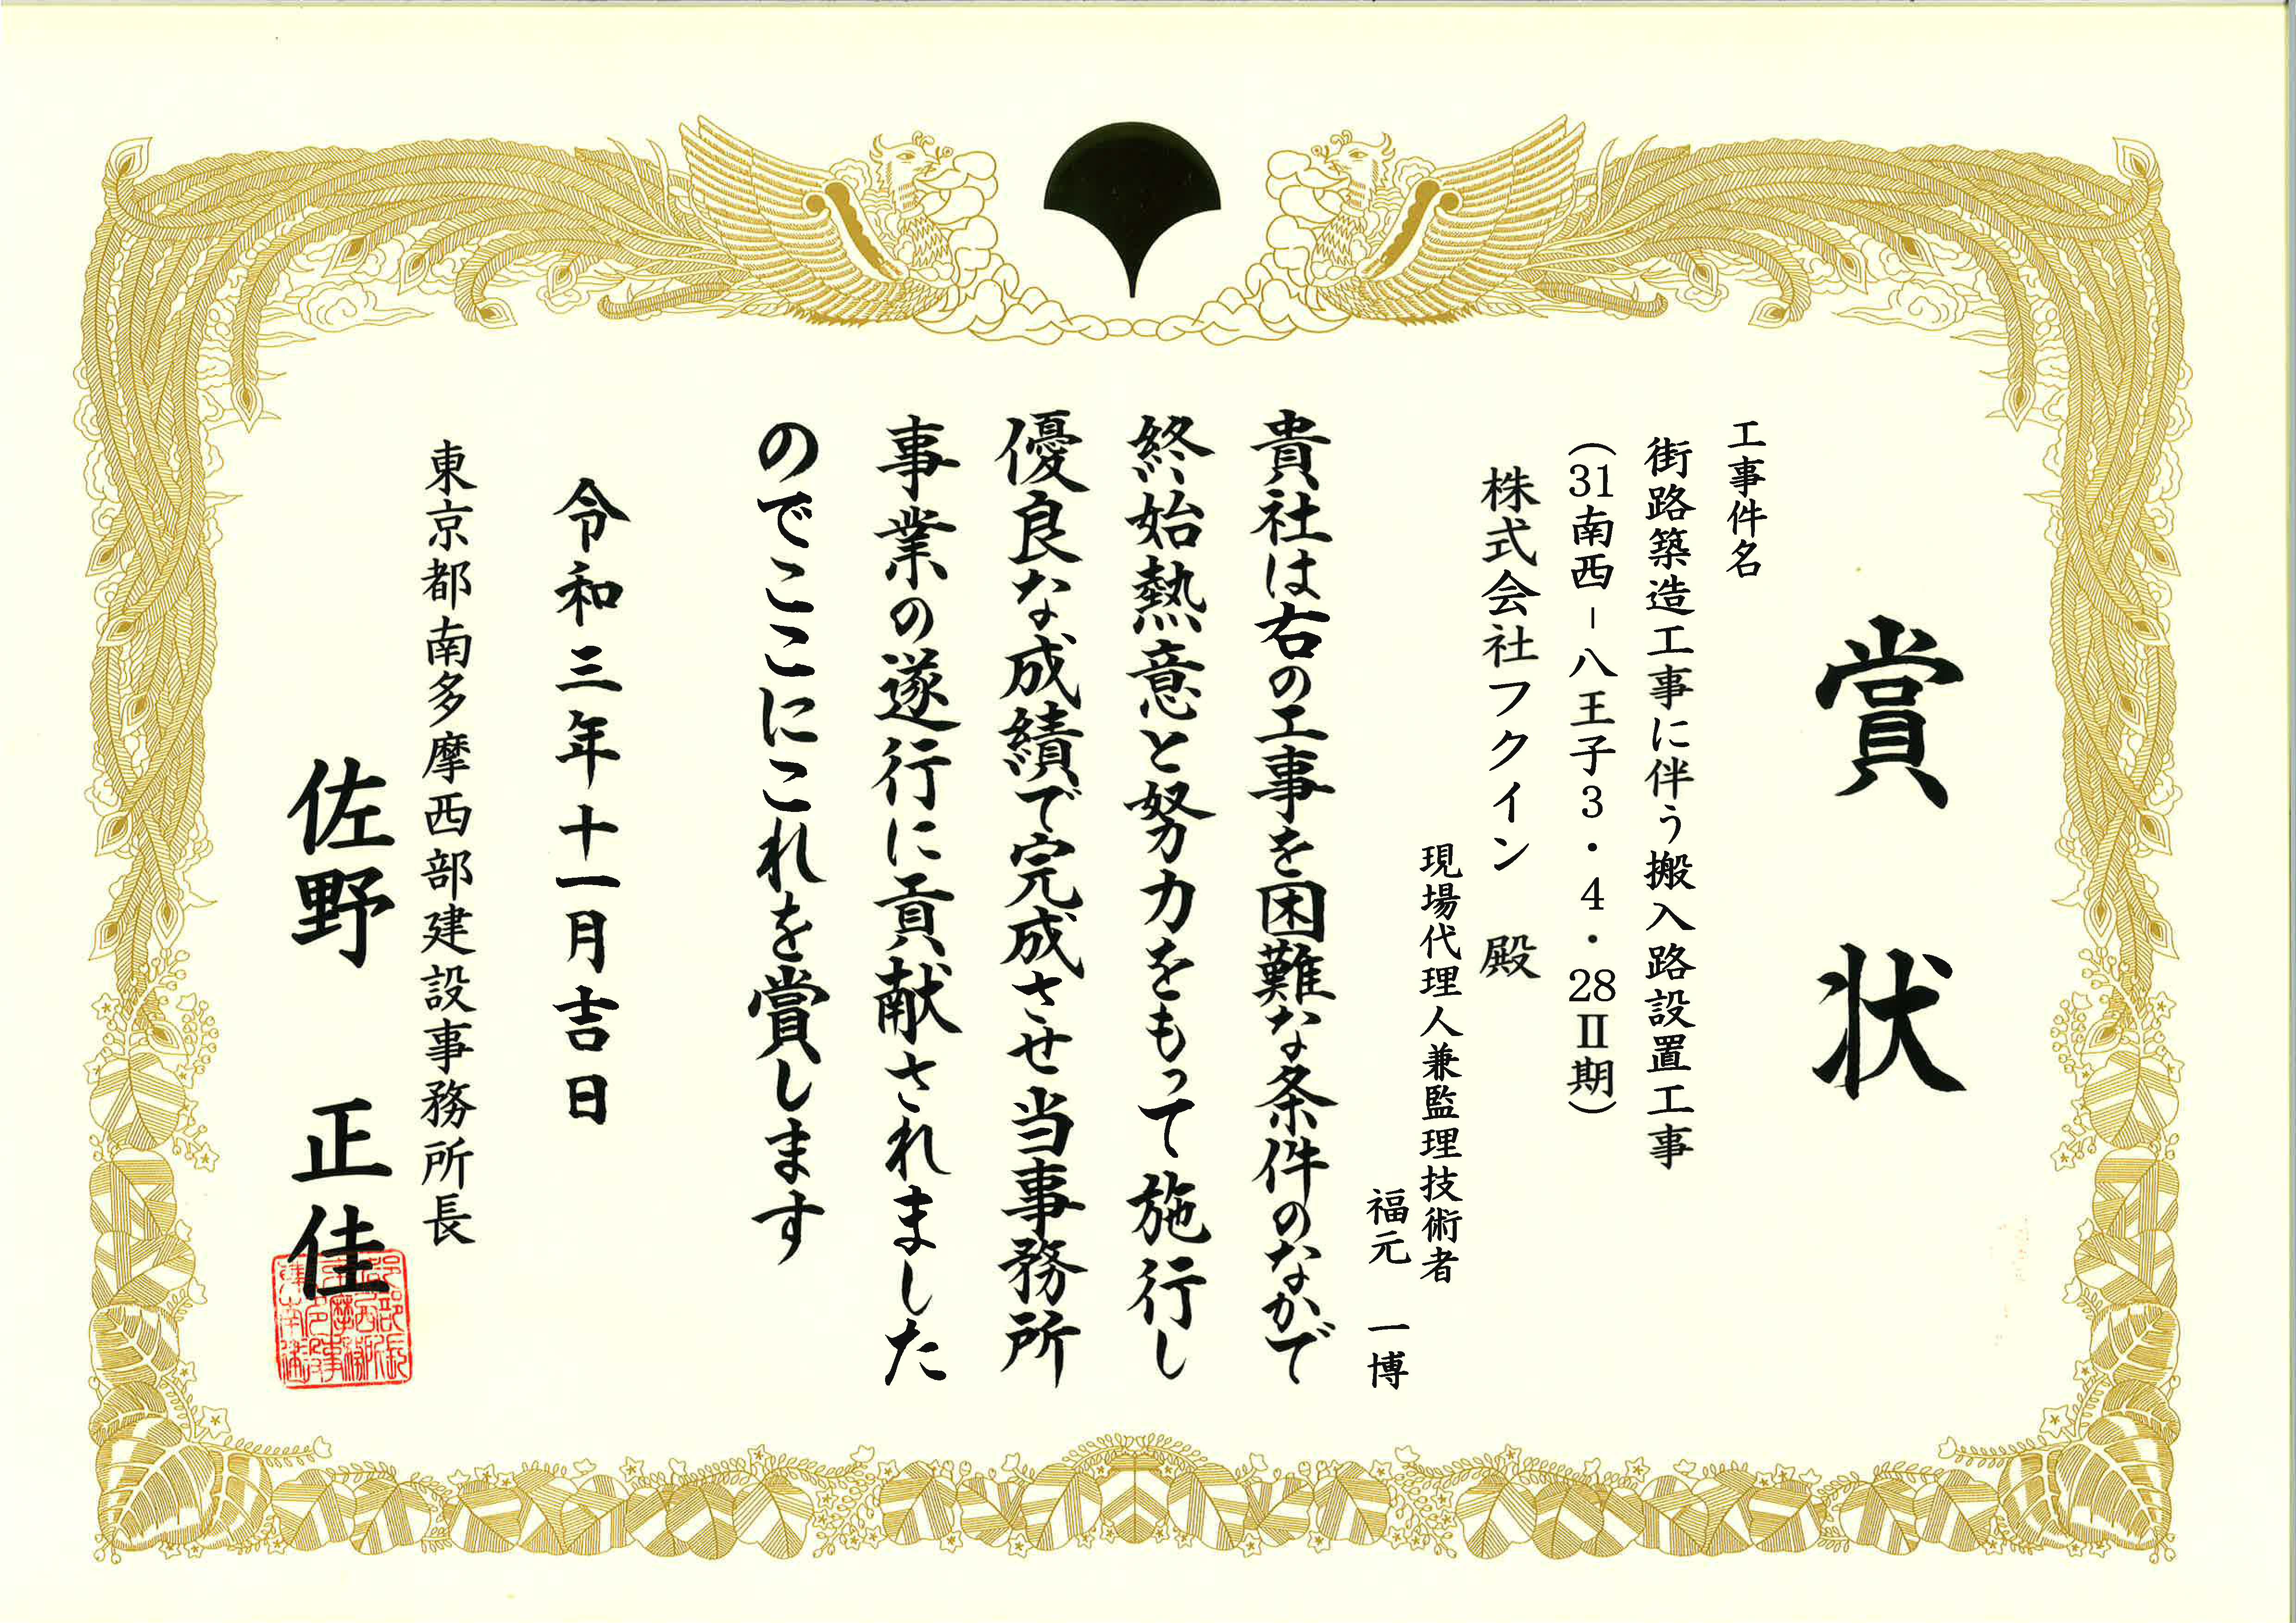 賞状
工事件名
街路築造工事に伴う搬入路設置工事
(31南西-八王子3・4・28Ⅱ期)
株式会社フクイン 殿
現場代理人兼監理技術者
福元 一博
貴社は右の工事を困難な条件のなかで
終始熱意と努力をもって施行し
優良な成績で完成させ当事務所
事業の遂行に貢献されました
のでここにこれを賞します
令和三年十一月吉日
東京都南多摩西部建設事務所長
佐野 正佳